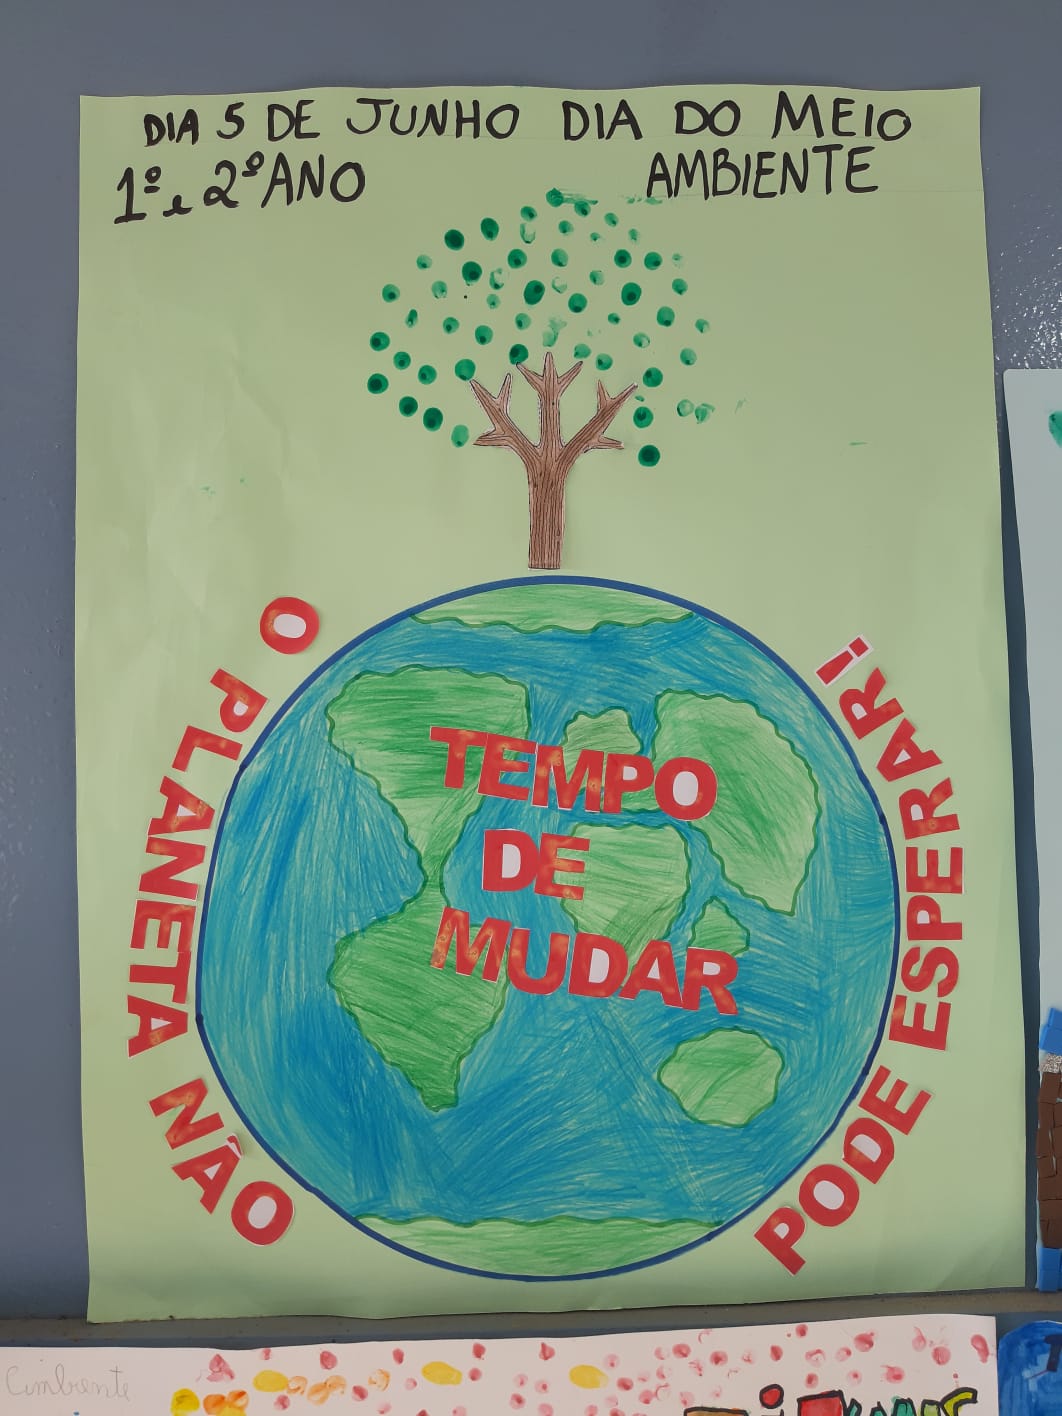 DIA 5 DE JUNHO DIA DO MEIO
1º e 2º ANO AMBIENTE
O PLANETA NÃO
PODE ESPERAR!
TEMPO
DE
MUDAR